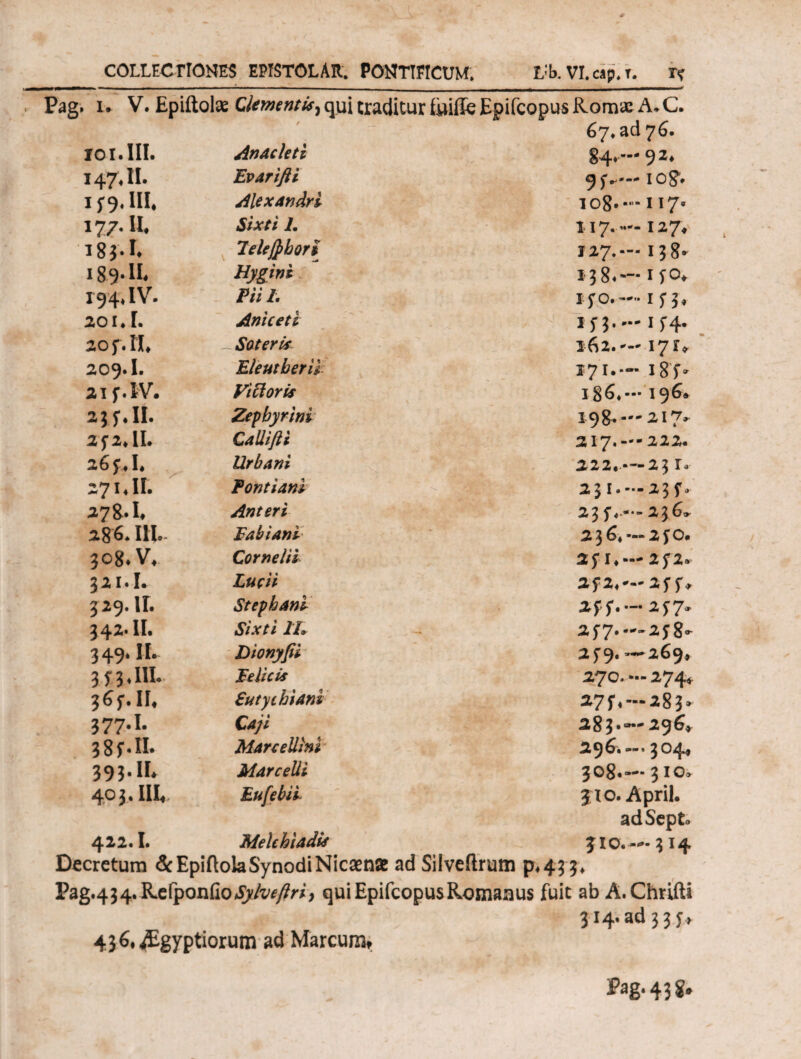 COLLECTIONES EPISTOLAR. PONTIFICUM. Lib. VI. cap. 1. 15
Pag. 1. V. Epiſtolæ Clementis, qui traditur fuiſſe Epiſcopus Romæ A. C.
67. ad 76.
101. III. Anacleti 84.--- 92.
147. II. Evariſti 95.--- 108.
159. III. Alexandri 108.--- 117.
177. II. Sixti I. 117.--- 127.
183. I. Teleſphori 127.--- 138.
189. II. Hygini 138.--- 150.
194. IV. Pii I. 150.--- 153.
201. I. Aniceti 153.--- 154.
205. II. Soteris 162.--- 171.
209. I. Eleutherii 171.--- 185.
215. IV. Victoris 186.--- 196.
235. II. Zephyrini 198.--- 217.
252. II. Calliſti 217.--- 222.
265. I. Urbani 222.--- 231.
271. II. Pontiani 231.--- 235.
278. I. Anteri 235.--- 236.
286. III. Fabiani 236.--- 250.
308. V. Cornelii 251.--- 252.
321. I. Lucii 252.--- 255.
329. II. Stephani 255.--- 257.
342. II. Sixti II. 257.--- 258.
349. II. Dionyſii 259.--- 269.
353. III. Felicis 270.--- 274.
365. II. Eutychiani 275.--- 283.
377. I. Caji 283.--- 296.
385. II. Marcellini 296.--- 304.
393. II. Marcelli 308.--- 310.
403. III. Euſebii 310. April.
ad Sept.
422. I. Melchiadis 310.--- 314
Decretum & Epiſtola Synodi Nicænæ ad Silveſtrum p. 433.
Pag. 434. Reſponſio Sylveſtri, qui Epiſcopus Romanus fuit ab A. Chriſti
314. ad 335.
436. Ægyptiorum ad Marcum.
Pag. 438.